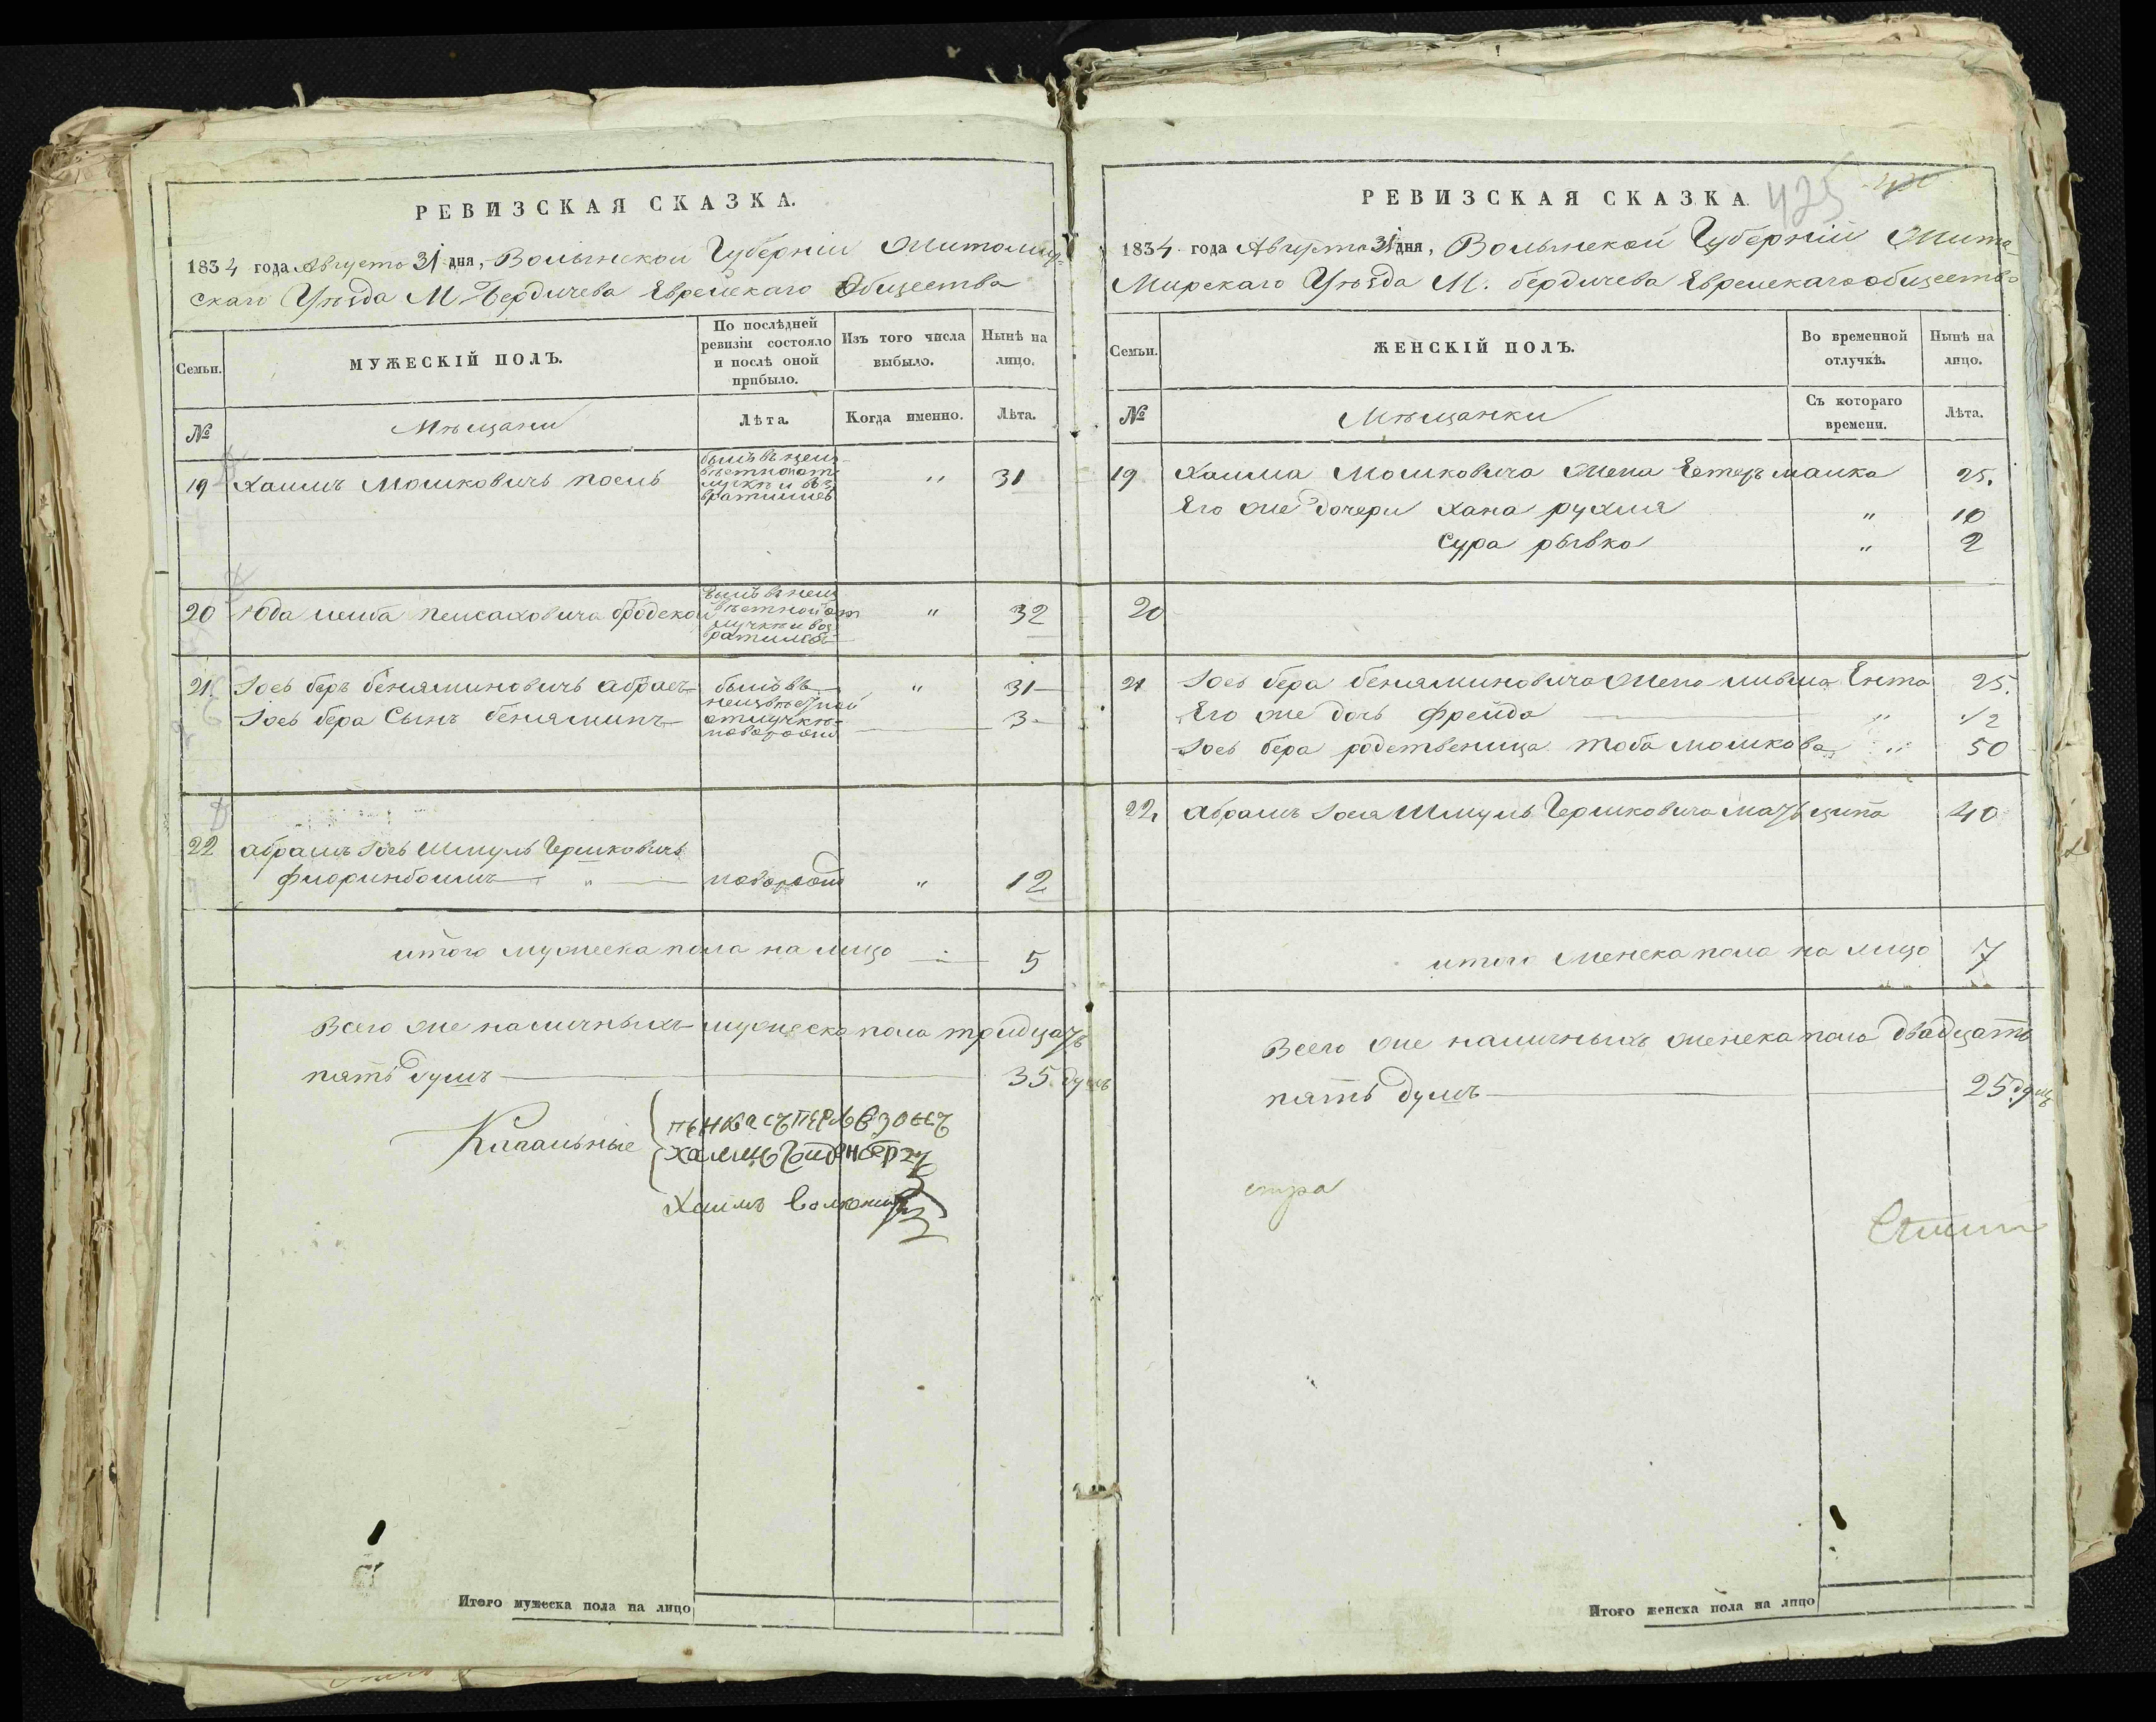 РЕВИЗСКАЯ СКАЗКА.
1834 года Августа 31 дня, Волынской Губерніи Житомир-
скаго Уѣзда М. Бердичева Еврейскаго Общества
Семьи.
МУЖЕСКІЙ ПОЛЪ.
По послѣдней ревизіи состояло и послѣ оной прибыло.
Изъ того числа выбыло.
Нынѣ на лицо.
№
Мѣщани
Лѣта.
Когда именно.
Лѣта.
19 Хаимъ Мошковичъ поель
былъ въ неиз-
вѣстной от-
лучкѣ и воз
вратился
" 31
20 Юда лейба пейсаховича бродской
былъ въ неиз
вѣстной от
лучкѣ и воз
вратился
" 32
21. Іось беръ беняминовичъ
былъ въ
" 31
неизвѣстной
Іось бера Сынъ беняминъ
отлучкѣ
3
новорож
22 абрамъ Іось Шмуль Гершковичъ
флоринбоимъ " новорож " 12
итого мужеска пола на лицо 5
Всего же наличныхъ мужеска пола тридцать
пять душъ 35 душъ
Кагальные
Хаимъ
РЕВИЗСКАЯ СКАЗКА
425
1834 года Августа 31 дня, Волынской Губерніи Жито-
мирскаго Уѣзда М. бердичева Еврейскаго общества
Семьи.
ЖЕНСКІЙ ПОЛЪ.
Во временной отлучкѣ.
Нынѣ на лицо.
№
Мѣщанки
Съ котораго времени.
Лѣта.
19 Хаима Мошковича жена Естеръ малка 25.
Его же дочери хана рухля " 10
Сура рывка " 2
20
21 Іось бера беняминовича жена Ента 25.
Его же дочь фрейда " 1/2
Іось бера родственица тоба мошкова " 50
22, абрамъ Іося Шмуль Гершковича мать ципа 40
итого женска пола на лицо 7
Всего же наличныхъ женска пола двадцать
пять душъ 25 душъ
Итого мужеска пола на лицо
Итого женска пола на лицо